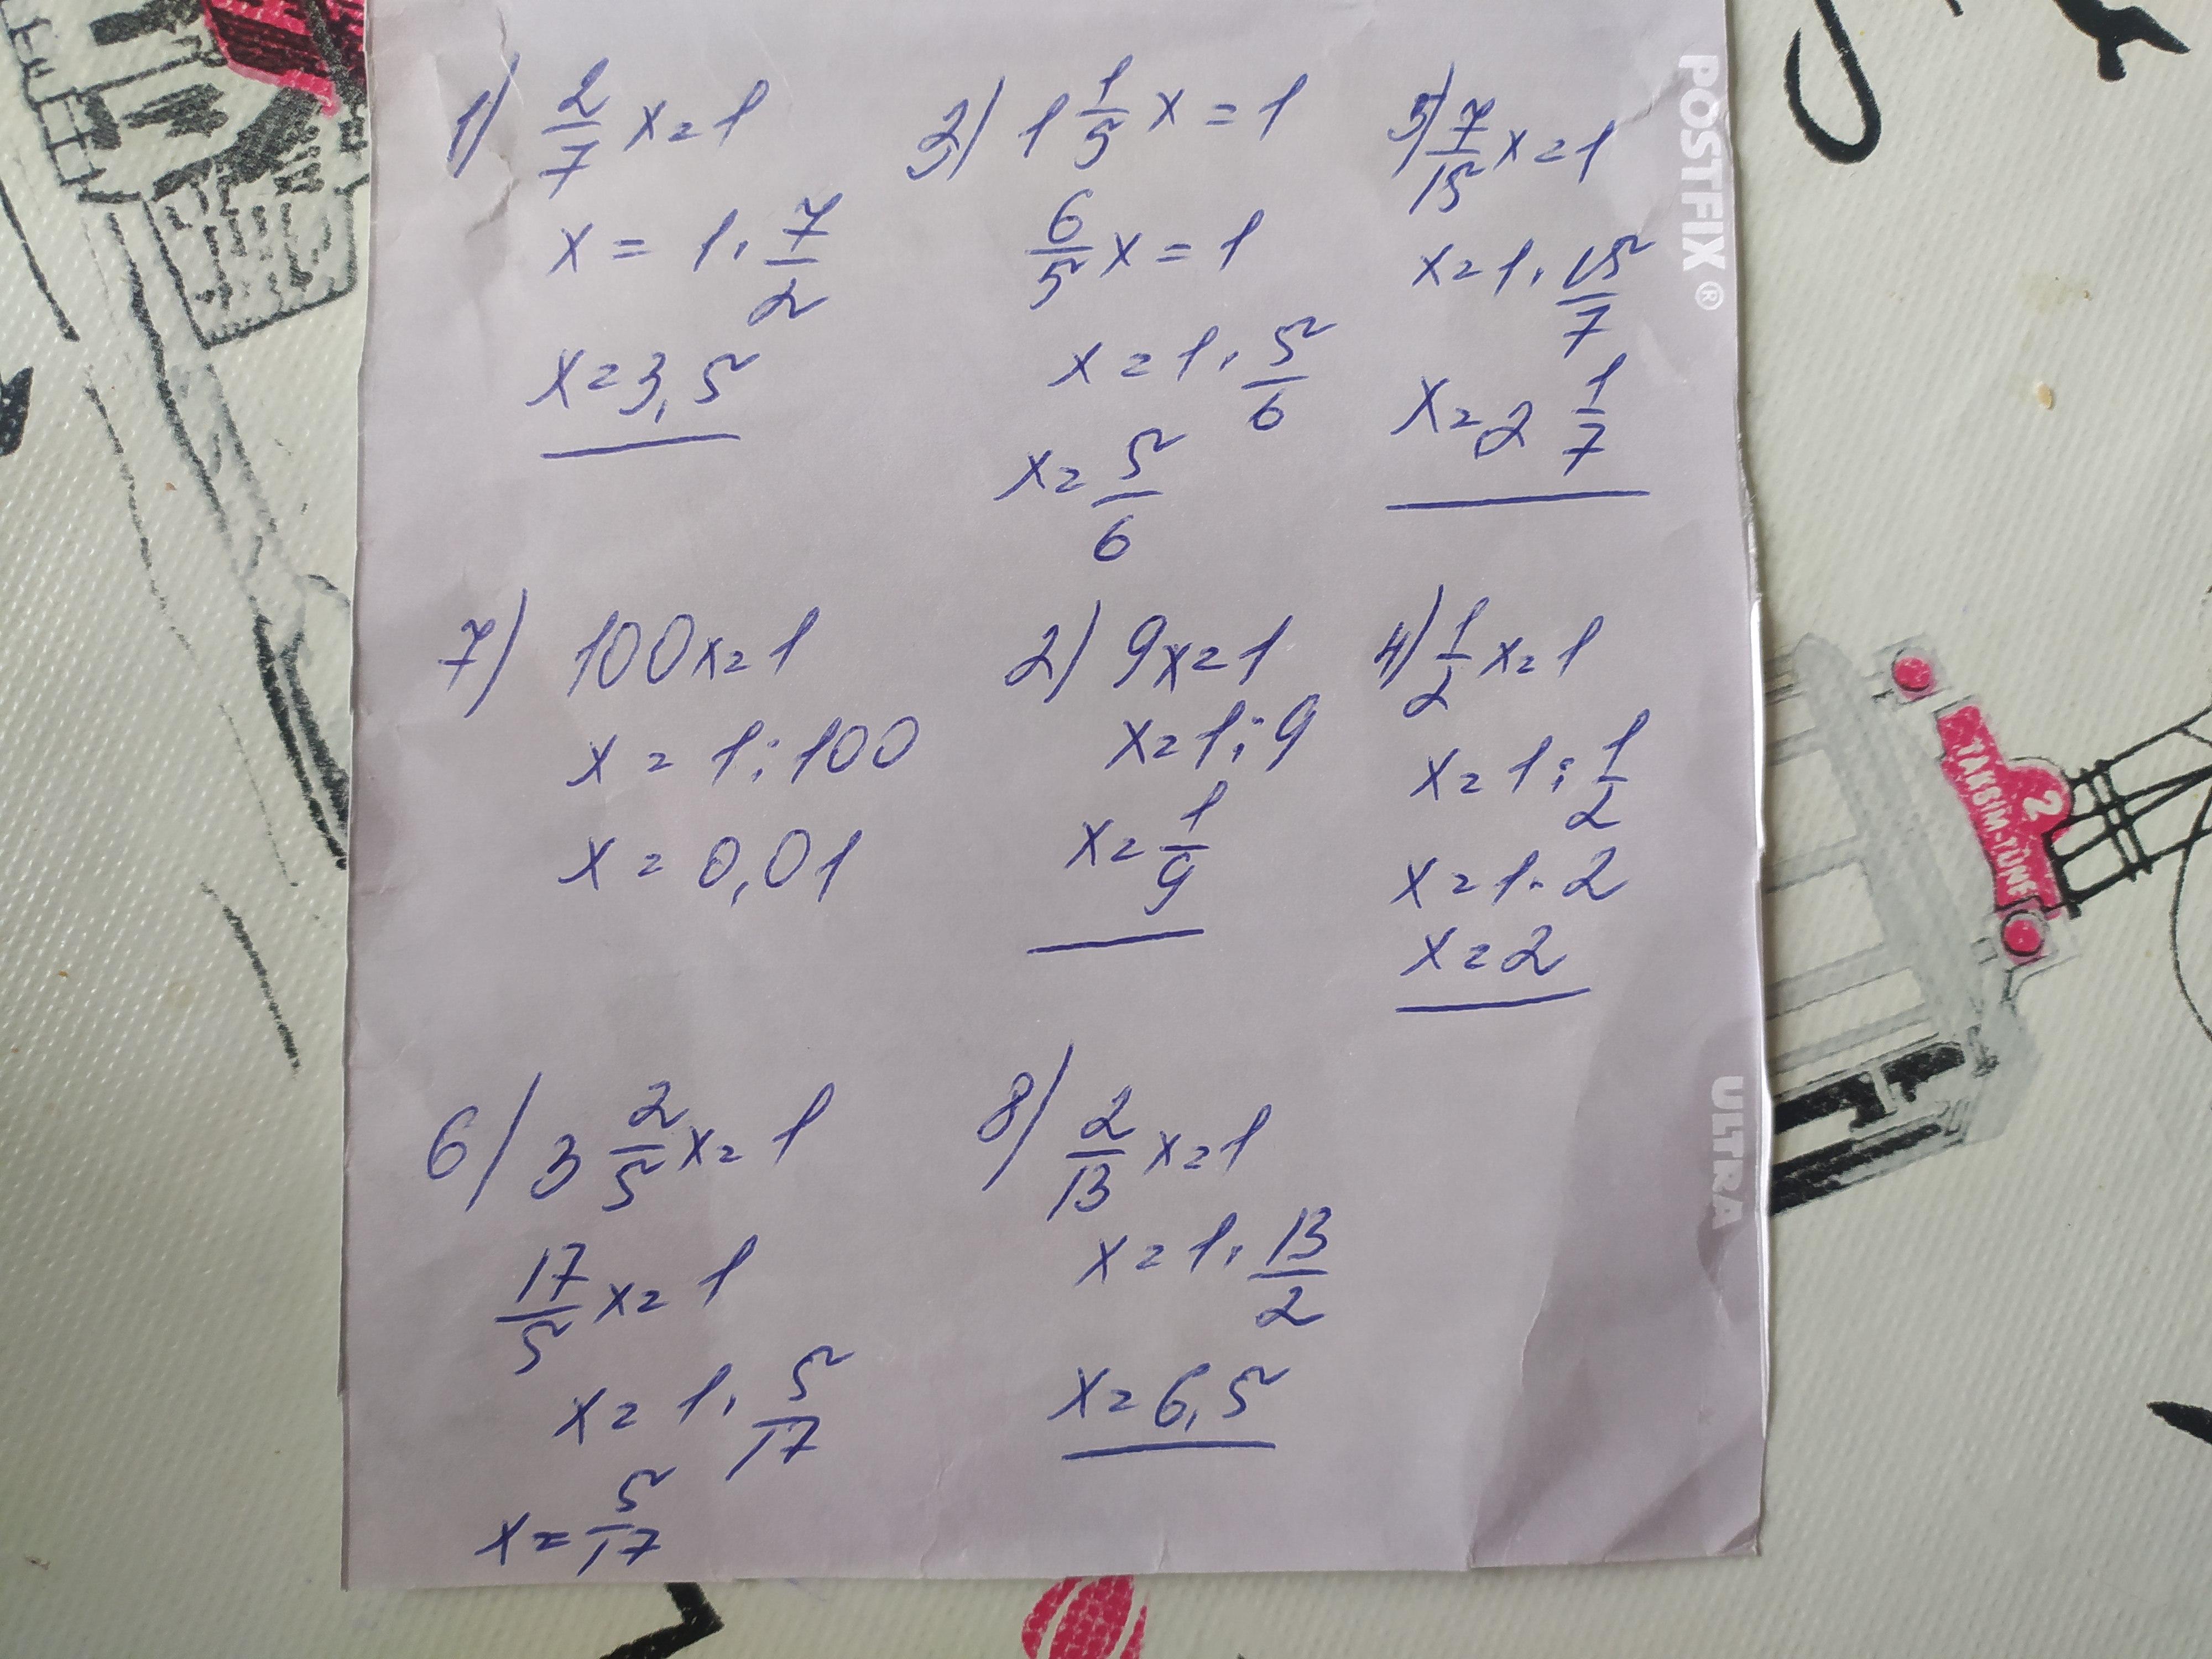 1) 2/7 x = 1
x = 1 · 7/2
x = 3,5
3) 1 1/5 x = 1
6/5 x = 1
x = 1 · 5/6
x = 5/6
5) 7/15 x = 1
x = 1 · 15/7
x = 2 1/7
7) 100x = 1
x = 1 : 100
x = 0,01
2) 9x = 1
x = 1 : 9
x = 1/9
4) 1/2 x = 1
x = 1 : 1/2
x = 1 · 2
x = 2
6) 3 2/5 x = 1
17/5 x = 1
x = 1 · 5/17
x = 5/17
8) 2/13 x = 1
x = 1 · 13/2
x = 6,5
POSTFIX ®
ULTRA
2
TAKSIM-TÜNE